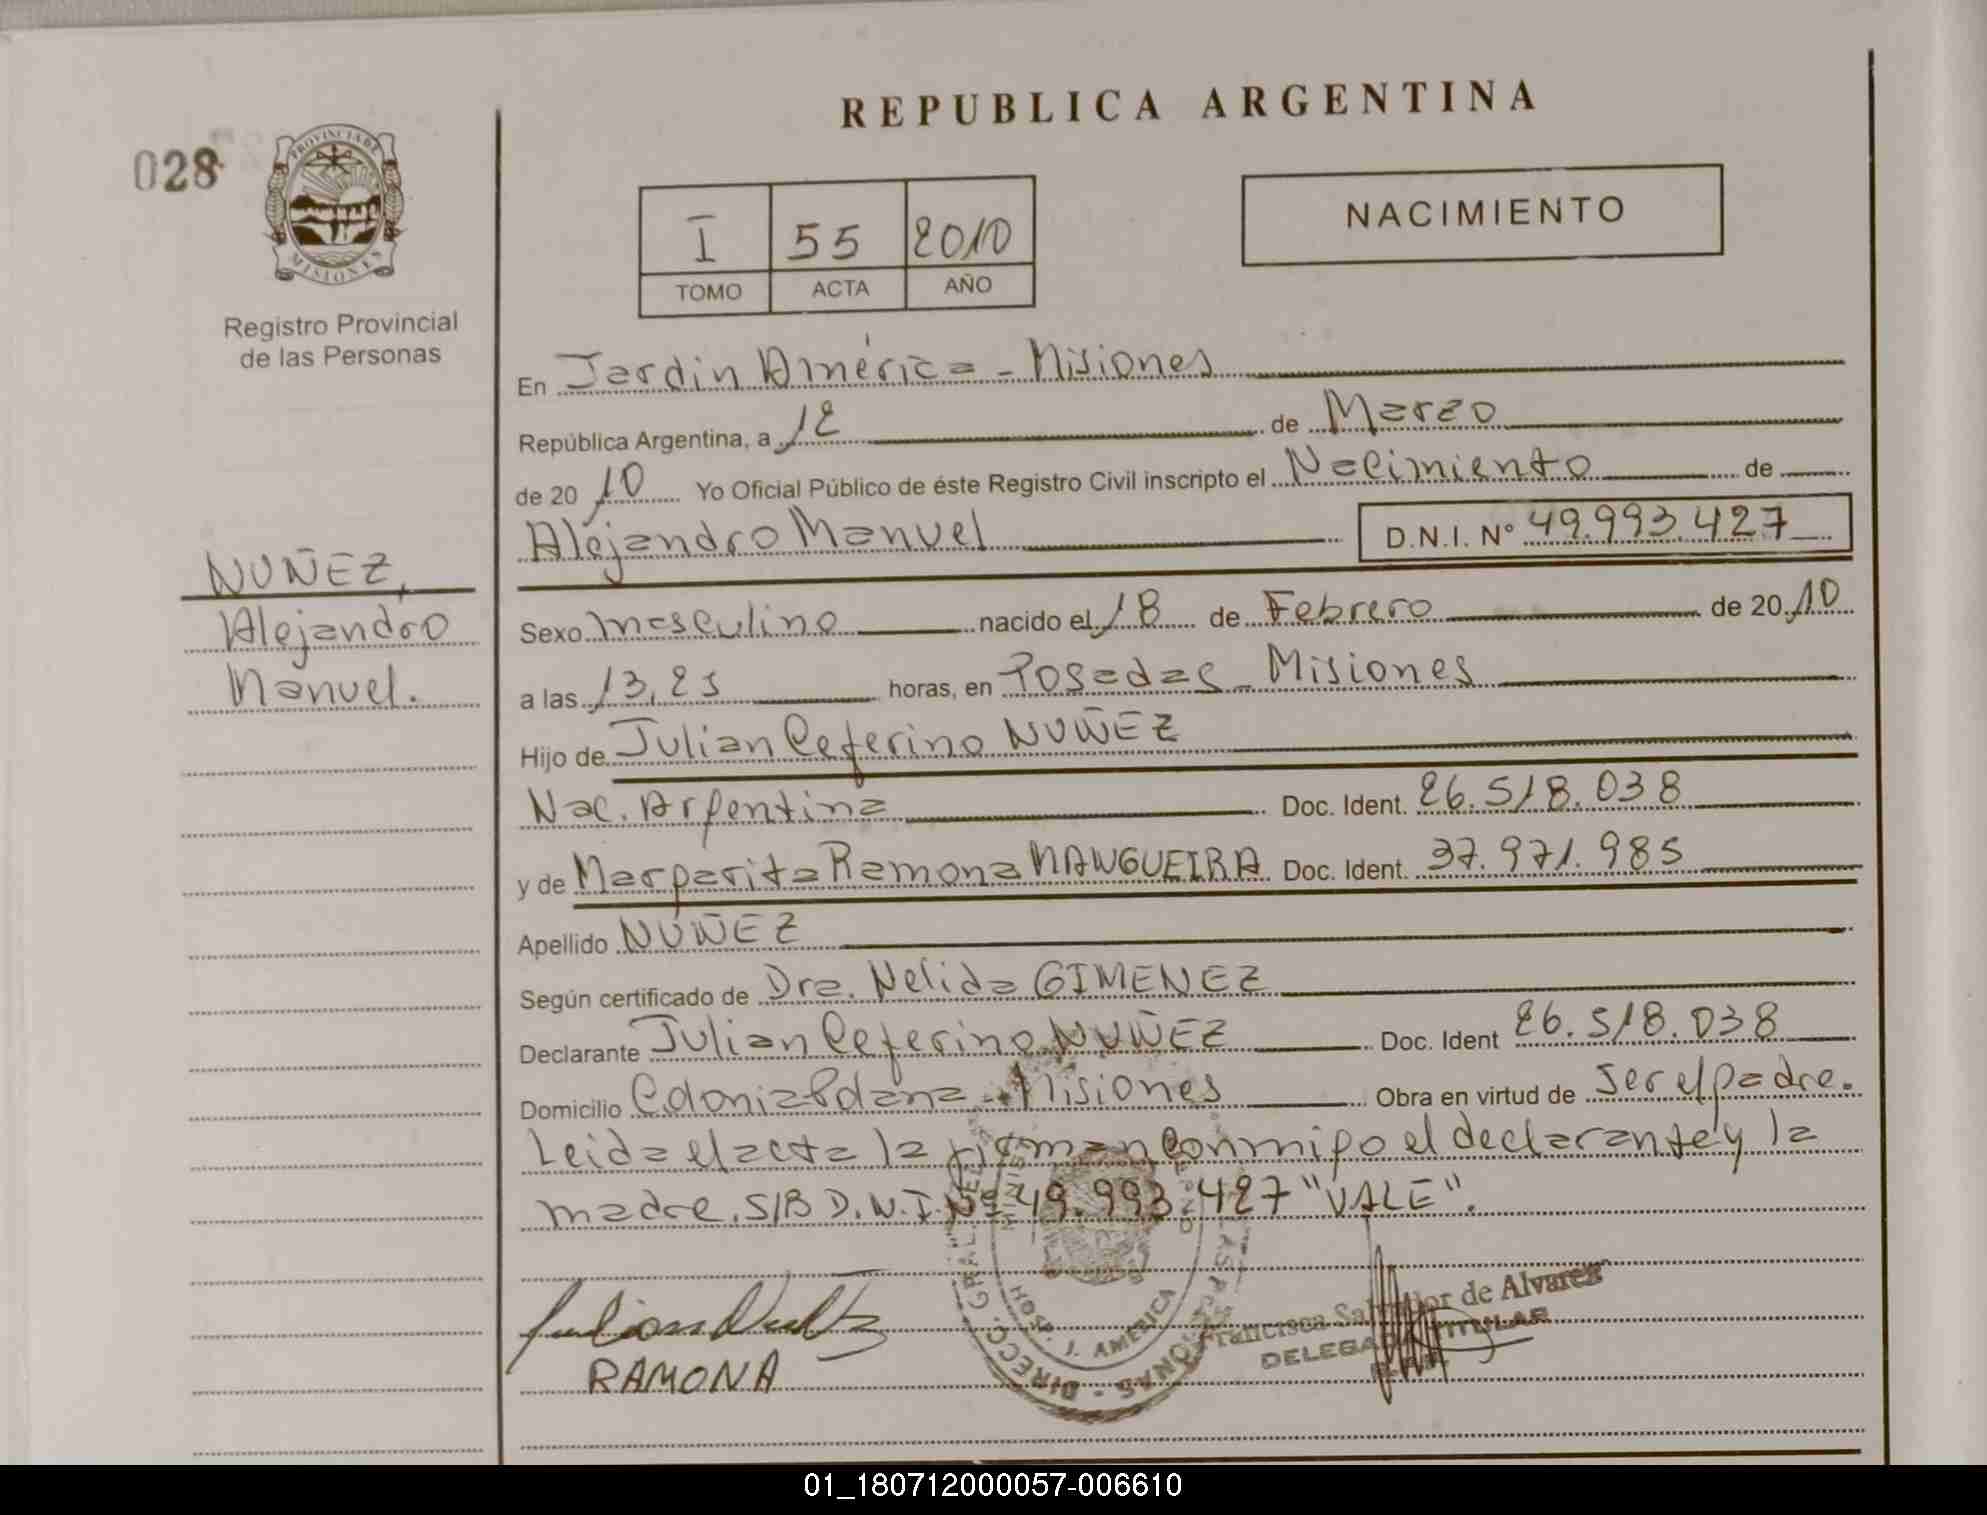 REPUBLICA ARGENTINA
028
PROVINCIA DE
MISIONES
Registro Provincial
de las Personas
I 55 2010
TOMO ACTA AÑO
NACIMIENTO
En Jardin América - Misiones
República Argentina, a 12 de Marzo
de 20 10 Yo Oficial Público de éste Registro Civil inscripto el Nacimiento de
Alejandro Manuel D.N.I. Nº 49.993.427
NUÑEZ,
Alejandro
Manuel.
Sexo masculino nacido el 18 de Febrero de 20 10
a las 13,25 horas, en Posadas - Misiones
Hijo de Julian Ceferino NUÑEZ
Nac. Argentina Doc. Ident. 26.518.038
y de Margarita Ramona MANGUEIRA Doc. Ident. 37.971.985
Apellido NUÑEZ
Según certificado de Dra. Nelida GIMENEZ
Declarante Julian Ceferino NUÑEZ Doc. Ident 26.518.038
Domicilio Colonia Misiones Obra en virtud de ser el padre.
Leida el acta la firman conmigo el declarante y la
madre. S/B D.N.I. Nº 49.993.427 "VALE".
RAMONA
DIRECC. GRAL. DEL
J. AMERICA
Francisca Salvador de Alvarez
DELEGADA TITULAR
01_180712000057-006610